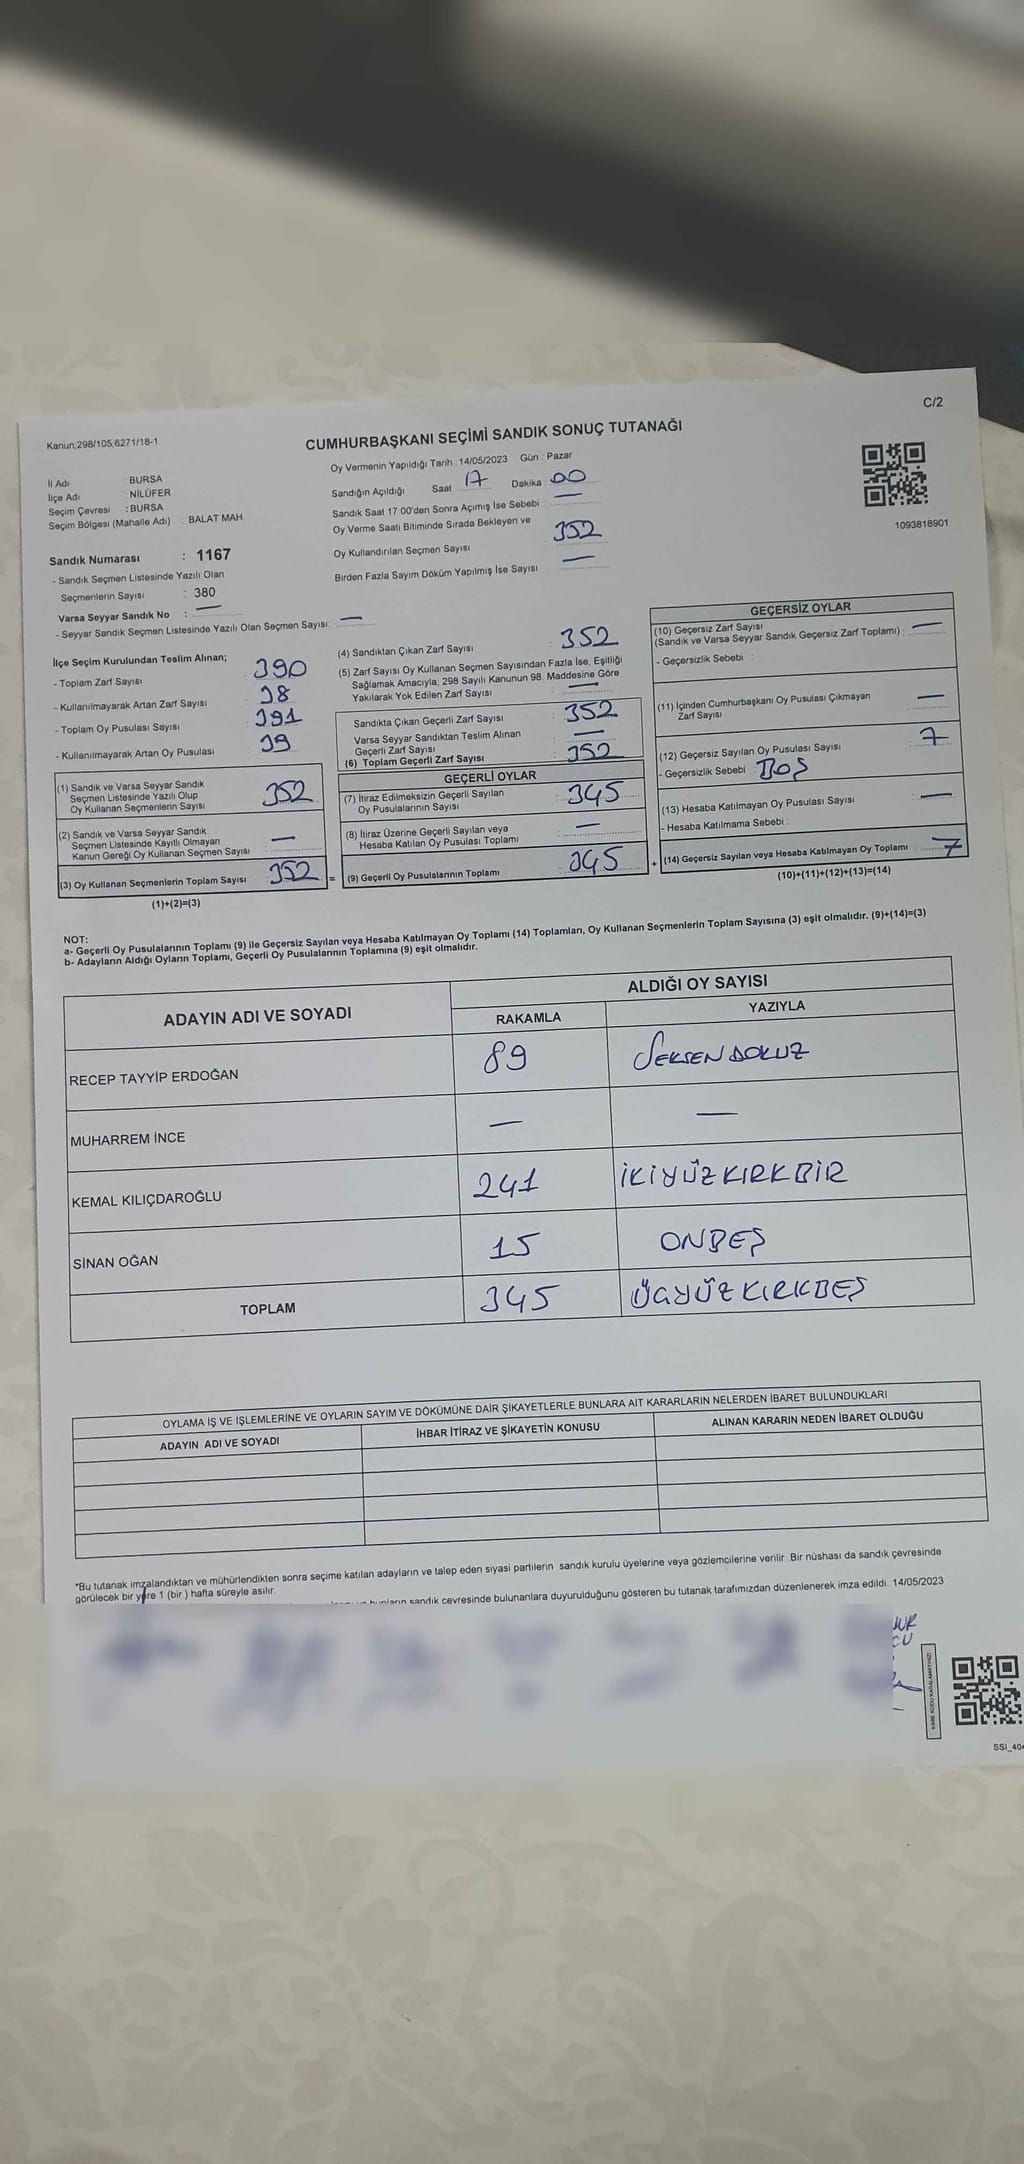 C/2
Kanun;298/105;6271/18-1
CUMHURBAŞKANI SEÇİMİ SANDIK SONUÇ TUTANAĞI
İl Adı : BURSA
İlçe Adı : NİLÜFER
Seçim Çevresi : BURSA
Seçim Bölgesi (Mahalle Adı) : BALAT MAH
Oy Vermenin Yapıldığı Tarih : 14/05/2023 Gün : Pazar
Sandığın Açıldığı Saat : 17 Dakika : 00
Sandık Saat 17:00'den Sonra Açımış İse Sebebi : —
Oy Verme Saati Bitiminde Sırada Bekleyen ve
Oy Kullandırılan Seçmen Sayısı : 352
Birden Fazla Sayım Döküm Yapılmış İse Sayısı : —
1093818901
Sandık Numarası : 1167
- Sandık Seçmen Listesinde Yazılı Olan
Seçmenlerin Sayısı : 380
Varsa Seyyar Sandık No : —
- Seyyar Sandık Seçmen Listesinde Yazılı Olan Seçmen Sayısı: —
İlçe Seçim Kurulundan Teslim Alınan;
- Toplam Zarf Sayısı : 390
- Kullanılmayarak Artan Zarf Sayısı : 38
- Toplam Oy Pusulası Sayısı : 391
- Kullanılmayarak Artan Oy Pusulası : 39
(1) Sandık ve Varsa Seyyar Sandık
Seçmen Listesinde Yazılı Olup
Oy Kullanan Seçmenlerin Sayısı : 352
(2) Sandık ve Varsa Seyyar Sandık
Seçmen Listesinde Kayıtlı Olmayan
Kanun Gereği Oy Kullanan Seçmen Sayısı : —
(3) Oy Kullanan Seçmenlerin Toplam Sayısı : 352
(1)+(2)=(3)
(4) Sandıktan Çıkan Zarf Sayısı : 352
(5) Zarf Sayısı Oy Kullanan Seçmen Sayısından Fazla İse, Eşitliği
Sağlamak Amacıyla; 298 Sayılı Kanunun 98. Maddesine Göre
Yakılarak Yok Edilen Zarf Sayısı : —
Sandıkta Çıkan Geçerli Zarf Sayısı : 352
Varsa Seyyar Sandıktan Teslim Alınan
Geçerli Zarf Sayısı : —
(6) Toplam Geçerli Zarf Sayısı : 352
GEÇERLİ OYLAR
(7) İtiraz Edilmeksizin Geçerli Sayılan
Oy Pusulalarının Sayısı : 345
(8) İtiraz Üzerine Geçerli Sayılan veya
Hesaba Katılan Oy Pusulası Toplamı : —
= (9) Geçerli Oy Pusulalarının Toplamı : 345
GEÇERSİZ OYLAR
(10) Geçersiz Zarf Sayısı
(Sandık ve Varsa Seyyar Sandık Geçersiz Zarf Toplamı) : —
- Geçersizlik Sebebi :
(11) İçinden Cumhurbaşkanı Oy Pusulası Çıkmayan
Zarf Sayısı : —
(12) Geçersiz Sayılan Oy Pusulası Sayısı : 7
- Geçersizlik Sebebi : BOŞ
(13) Hesaba Katılmayan Oy Pusulası Sayısı : —
- Hesaba Katılmama Sebebi :
+ (14) Geçersiz Sayılan veya Hesaba Katılmayan Oy Toplamı : 7
(10)+(11)+(12)+(13)=(14)
NOT:
a- Geçerli Oy Pusulalarının Toplamı (9) ile Geçersiz Sayılan veya Hesaba Katılmayan Oy Toplamı (14) Toplamları, Oy Kullanan Seçmenlerin Toplam Sayısına (3) eşit olmalıdır. (9)+(14)=(3)
b- Adayların Aldığı Oyların Toplamı, Geçerli Oy Pusulalarının Toplamına (9) eşit olmalıdır.
ADAYIN ADI VE SOYADI
ALDIĞI OY SAYISI
RAKAMLA YAZIYLA
RECEP TAYYİP ERDOĞAN 89 SEKSENDOKUZ
MUHARREM İNCE — —
KEMAL KILIÇDAROĞLU 241 İKİYÜZKIRKBİR
SİNAN OĞAN 15 ONBEŞ
TOPLAM 345 ÜÇYÜZKIRKBEŞ
OYLAMA İŞ VE İŞLEMLERİNE VE OYLARIN SAYIM VE DÖKÜMÜNE DAİR ŞİKAYETLERLE BUNLARA AİT KARARLARIN NELERDEN İBARET BULUNDUKLARI
ADAYIN ADI VE SOYADI İHBAR İTİRAZ VE ŞİKAYETİN KONUSU ALINAN KARARIN NEDEN İBARET OLDUĞU
*Bu tutanak imzalandıktan ve mühürlendikten sonra seçime katılan adayların ve talep eden siyasi partilerin sandık kurulu üyelerine veya gözlemcilerine verilir. Bir nüshası da sandık çevresinde
görülecek bir yere 1 (bir) hafta süreyle asılır.
bunların sandık çevresinde bulunanlara duyurulduğunu gösteren bu tutanak tarafımızdan düzenlenerek imza edildi. 14/05/2023
KARE KODU KARALAMAYINIZ!